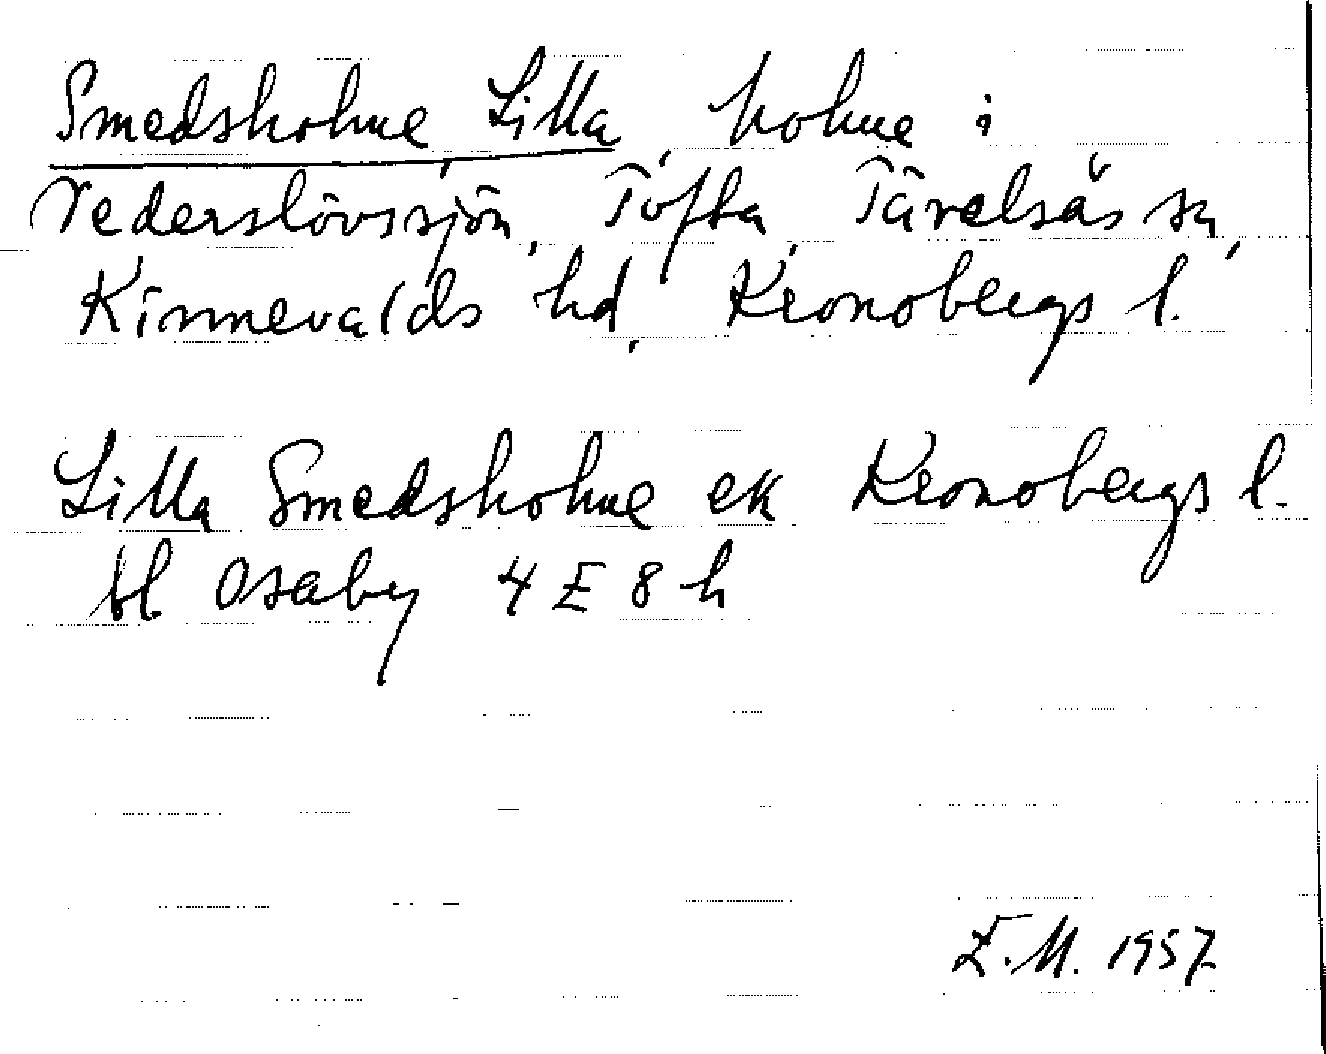 Smedsholme Lilla, holme i
Vederslövssjön, Tofta, Tävelsås sn,
Kinnevalds hd, Kronobergs l.
Lilla Smedsholme ek Kronobergs l.
bl Osaby 4 E 8 h
E.M. 1957